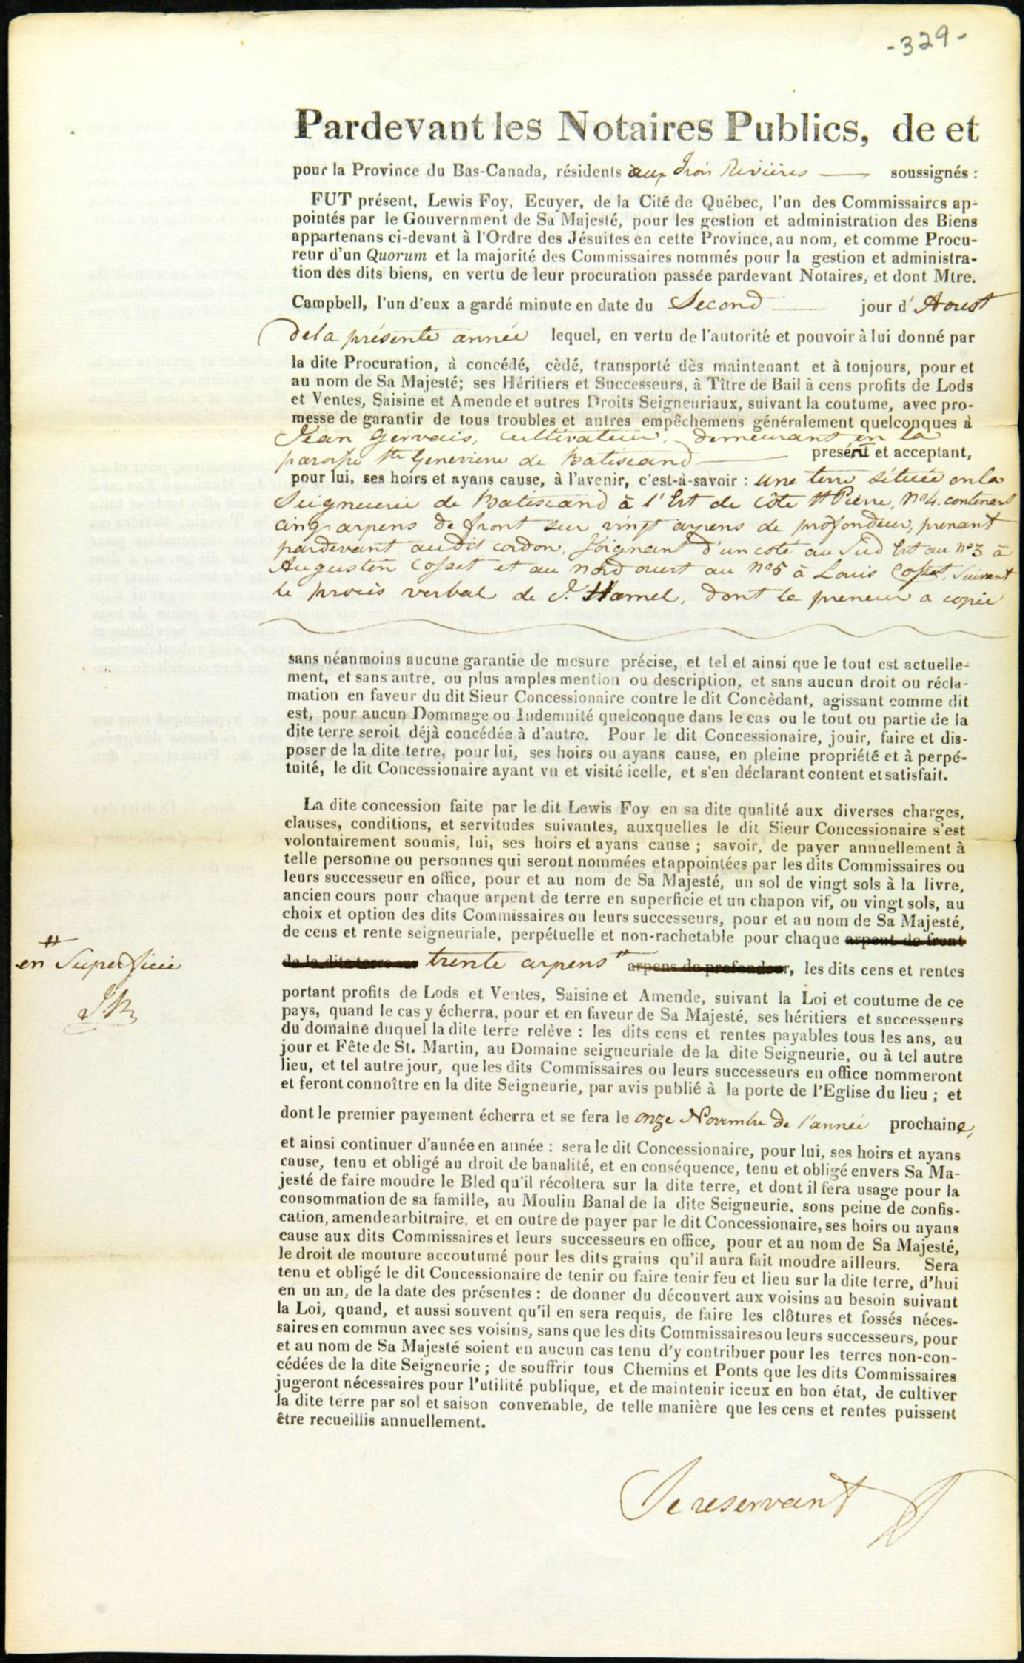 -329-
Pardevant les Notaires Publics, de et
pour la Province du Bas-Canada, résidents aux Trois Rivières soussignés :
FUT présent, Lewis Foy, Ecuyer, de la Cité de Québec, l'un des Commissaires ap-
pointés par le Gouvernment de Sa Majesté, pour les gestion et administration des Biens
appartenans ci-devant à l'Ordre des Jésuites en cette Province, au nom, et comme Procu-
reur d'un Quorum et la majorité des Commissaires nommés pour la gestion et administra-
tion des dits biens, en vertu de leur procuration passée pardevant Notaires, et dont Mtre.
Campbell, l'un d'eux a gardé minute en date du Second jour d'Aoust
de la présente année lequel, en vertu de l'autorité et pouvoir à lui donné par
la dite Procuration, à concédé, cèdé, transporté dès maintenant et à toujours, pour et
au nom de Sa Majesté; ses Héritiers et Successeurs, à Tître de Bail à cens profits de Lods
et Ventes, Saisine et Amende et autres Droits Seigneuriaux, suivant la coutume, avec pro-
messe de garantir de tous troubles et autres empêchemens généralement quelconques à
Jean Gervais, cultivateur, demeurant en la
paroisse Ste Genevieve de Batiscand présent et acceptant,
pour lui, ses hoirs et ayans cause, à l'avenir, c'est-à-savoir : une terre située en la
Seigneurie de Batiscand à l'Est de Côte St Pierre, No 4. contenant
cinq arpens de front sur vingt arpens de profondeur, prenant
pardevant audit cordon, Joignant d'un coté au Sud Est au no 3 à
Augustin Cosset et au Nord ouest au no 5 à Louis Cosset, Suivant
le procès verbal de J. Hamel, dont le preneur a copie
sans néanmoins aucune garantie de mesure précise, et tel et ainsi que le tout est actuelle-
ment, et sans autre, ou plus amples mention ou description, et sans aucun droit ou récla-
mation en faveur du dit Sieur Concessionaire contre le dit Concèdant, agissant comme dit
est, pour aucun Dommage ou Indemnité quelconque dans le cas ou le tout ou partie de la
dite terre seroit déjà concédée à d'autre. Pour le dit Concessionaire, jouir, faire et dis-
poser de la dite terre, pour lui, ses hoirs ou ayans cause, en pleine propriété et à perpé-
tuité, le dit Concessionaire ayant vu et visité icelle, et s'en déclarant content et satisfait.
La dite concession faite par le dit Lewis Foy en sa dite qualité aux diverses charges,
clauses, conditions, et servitudes suivantes, auxquelles le dit Sieur Concessionaire s'est
volontairement soumis, lui, ses hoirs et ayans cause ; savoir, de payer annuellement à
telle personne ou personnes qui seront nommées et appointées par les dits Commissaires ou
leurs successeur en office, pour et au nom de Sa Majesté, un sol de vingt sols à la livre,
ancien cours pour chaque arpent de terre en superficie et un chapon vif, ou vingt sols, au
choix et option des dits Commissaires ou leurs successeurs, pour et au nom de Sa Majesté,
de cens et rente seigneuriale, perpétuelle et non-rachetable pour chaque arpent de front
en Superficie
de la dite terre sur trente arpens arpens de profondeur, les dits cens et rentes
JB
portant profits de Lods et Ventes, Saisine et Amende, suivant la Loi et coutume de ce
pays, quand le cas y écherra, pour et en faveur de Sa Majesté, ses héritiers et successeurs
du domaine duquel la dite terre relève : les dits cens et rentes payables tous les ans, au
jour et Fête de St. Martin, au Domaine seigneuriale de la dite Seigneurie, ou à tel autre
lieu, et tel autre jour, que les dits Commissaires ou leurs successeurs en office nommeront
et feront connoître en la dite Seigneurie, par avis publié à la porte de l'Eglise du lieu ; et
dont le premier payement écherra et se fera le onze Novembre de l'année prochaine,
et ainsi continuer d'année en année : sera le dit Concessionaire, pour lui, ses hoirs et ayans
cause, tenu et obligé au droit de banalité, et en conséquence, tenu et obligé envers Sa Ma-
jesté de faire moudre le Bled qu'il récoltera sur la dite terre, et dont il fera usage pour la
consommation de sa famille, au Moulin Banal de la dite Seigneurie, sons peine de confis-
cation, amende arbitraire, et en outre de payer par le dit Concessionaire, ses hoirs ou ayans
cause aux dits Commissaires et leurs successeurs en office, pour et au nom de Sa Majesté,
le droit de mouture accoutumé pour les dits grains qu'il aura fait moudre ailleurs. Sera
tenu et obligé le dit Concessionaire de tenir ou faire tenir feu et lieu sur la dite terre, d'hui
en un an, de la date des présentes : de donner du découvert aux voisins au besoin suivant
la Loi, quand, et aussi souvent qu'il en sera requis, de faire les clôtures et fossés néces-
saires en commun avec ses voisins, sans que les dits Commissaires ou leurs successeurs, pour
et au nom de Sa Majesté soient en aucun cas tenu d'y contribuer pour les terres non-con-
cédées de la dite Seigneurie ; de souffrir tous Chemins et Ponts que les dits Commissaires
jugeront nécessaires pour l'utilité publique, et de maintenir iceux en bon état, de cultiver
la dite terre par sol et saison convenable, de telle manière que les cens et rentes puissent
être recueillis annuellement.
Se reservant